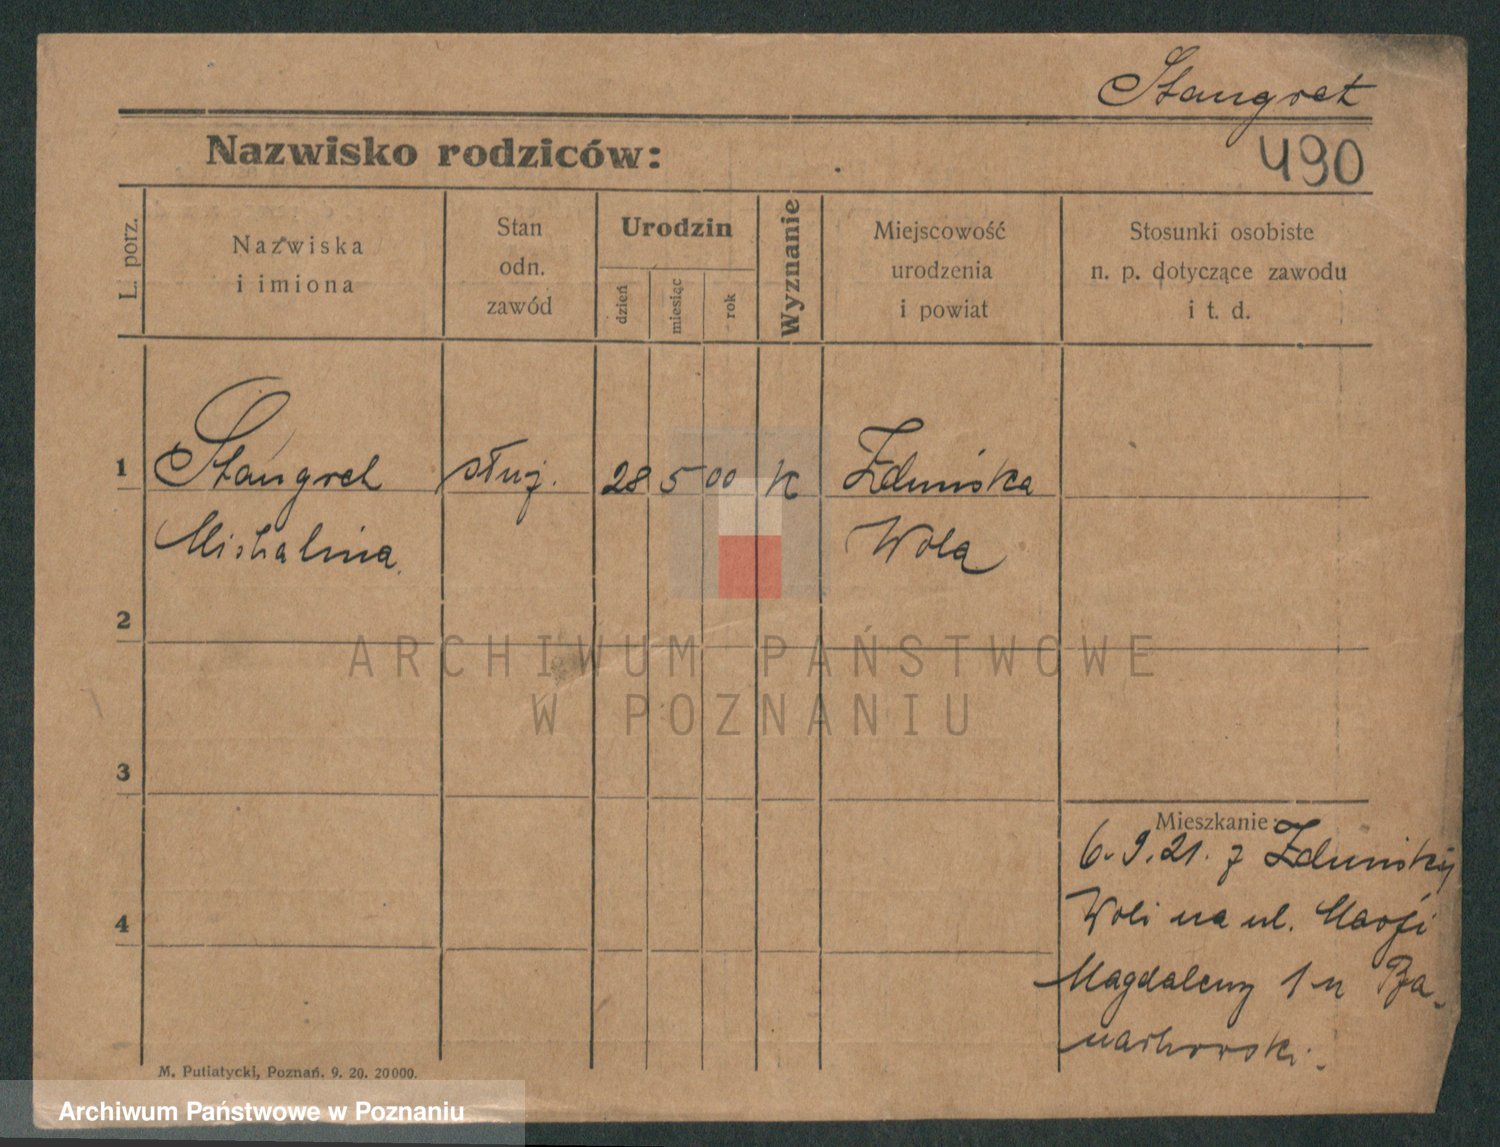 Stangret
Nazwisko rodziców:
490
L. porz.
Nazwiska
i imiona
Stan
odn.
zawód
Urodzin
dzień
miesiąc
rok
Wyznanie
Miejscowość
urodzenia
i powiat
Stosunki osobiste
n. p. dotyczące zawodu
i t. d.
1
Stangret
służ.
28
5
00
K
Zduńska
Michalina
Wola
2
3
Mieszkanie:
6.9.21. z Zduński
4
Woli na ul. Marji
Magdaleny 1 u
M. Putiatycki, Poznań. 9. 20. 20000.
ARCHIWUM PAŃSTWOWE
W POZNANIU
Archiwum Państwowe w Poznaniu